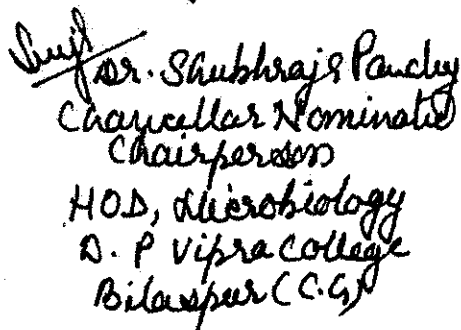 Dr. Shubhrajs Pandey
Chancellar Nominated
Chairperson
HOD, Microbiology
D. P Vipra College
Bilaspur (C.G)